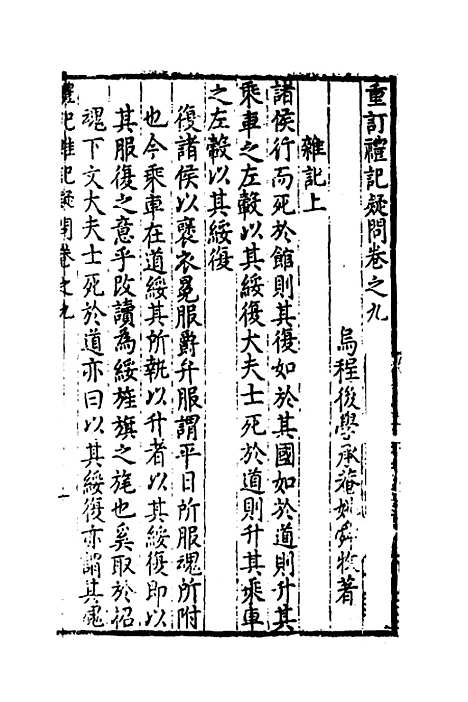 重訂禮記疑問卷之九
烏程後學承菴姚舜牧著
雜記上
諸侯行而死於館則其復如於其國如於道則升其
乘車之左轂以其綏復大夫士死於道則升其乘車
之左轂以其綏復
復諸侯以襃衣冕服爵弁服謂平日所服魂所附
也今乘車在道綏其所執以升者以其綏復即以
其服復之意乎改讀為綏旌旗之旄也奚取於招
魂下文大夫士死於道亦曰以其綏復亦謂其旄
禮記雜記疑問卷之九 一